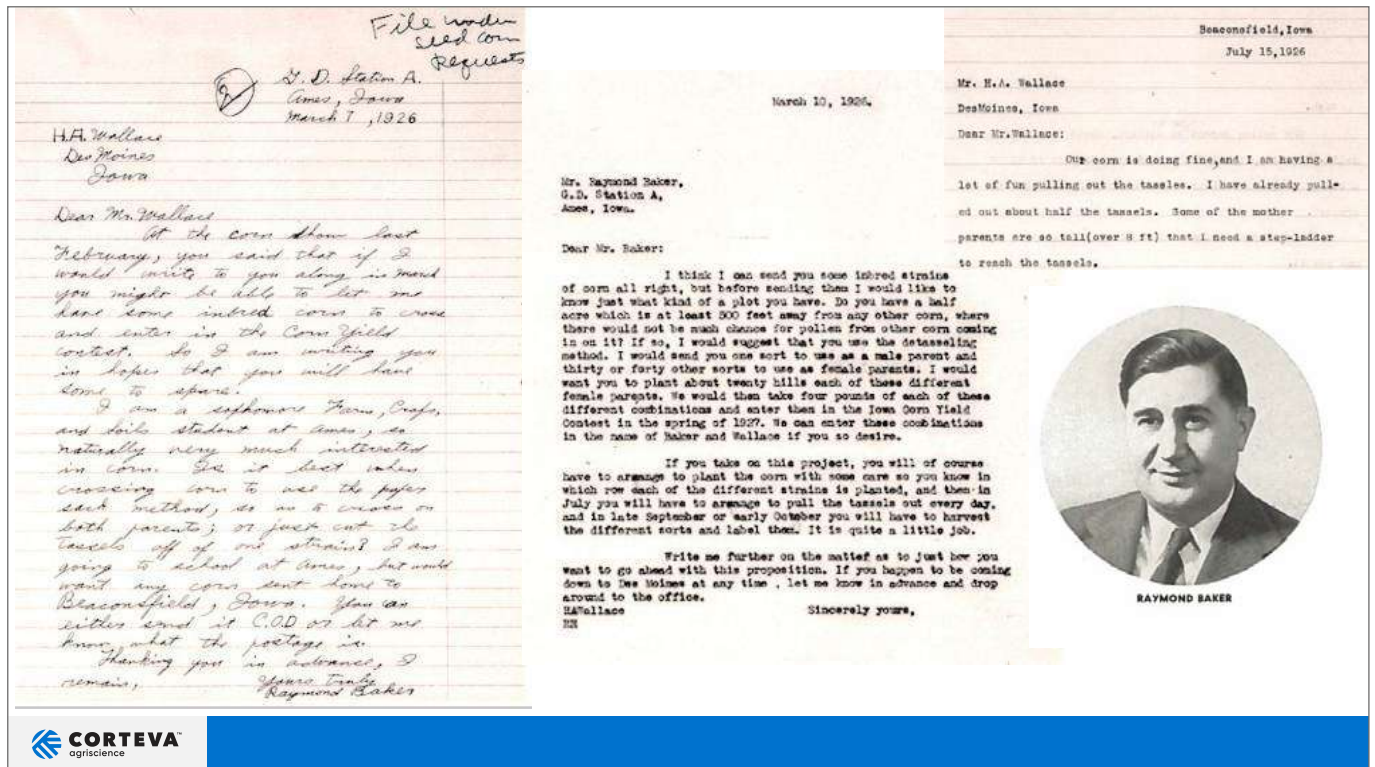 File under
seed corn
requests
2
G. D. Station A.
Ames, Iowa
March 7, 1926
H.A. Wallace
Des Moines
Iowa
Dear Mr. Wallace
At the corn show last
February, you said that if I
would write to you along in march
you might be able to let me
have some inbred corn to cross
and enter in the Corn Yield
contest. So I am writing you
in hopes that you will have
some to spare.
I am a sophomore Farm, Crops,
and Soils student at Ames, so
naturally very much interested
in corn. Is it best when
crossing corn to use the paper
sack method, so as to cross on
both parents; or just cut the
tassels off of one strain? I am
going to school at Ames, but would
want any corn sent home to
Beaconsfield, Iowa. You can
either send it C.O.D or let me
know what the postage is.
Thanking you in advance, I
remain,
Yours Truly
Raymond Baker
March 10, 1926.
Mr. Raymond Baker,
G.D. Station A,
Ames, Iowa.
Dear Mr. Baker:
I think I can send you some inbred strains
of corn all right, but before sending them I would like to
know just what kind of a plot you have. Do you have a half
acre which is at least 500 feet away from any other corn, where
there would not be much chance for pollen from other corn coming
in on it? If so, I would suggest that you use the detasseling
method. I would send you one sort to use as a male parent and
thirty or forty other sorts to use as female parents. I would
want you to plant about twenty hills each of these different
female parents. We would then take four pounds of each of these
different combinations and enter them in the Iowa Corn Yield
Contest in the spring of 1927. We can enter these combinations
in the name of Baker and Wallace if you so desire.
If you take on this project, you will of course
have to arrange to plant the corn with some care so you know in
which row each of the different strains is planted, and then in
July you will have to arrange to pull the tassels out every day,
and in late September or early October you will have to harvest
the different sorts and label them. It is quite a little job.
Write me further on the matter as to just how you
want to go ahead with this proposition. If you happen to be coming
down to Des Moines at any time , let me know in advance and drop
around to the office.
HAWallace
Sincerely yours,
Beaconsfield,Iowa
July 15,1926
Mr. H.A. Wallace
DesMoines, Iowa
Dear Mr.Wallace:
Our corn is doing fine,and I am having a
lot of fun pulling out the tassles. I have already pull-
ed out about half the tassels. Some of the mother
parents are so tall(over 8 ft) that I need a step-ladder
to reach the tassels.
RAYMOND BAKER
CORTEVA™
agriscience